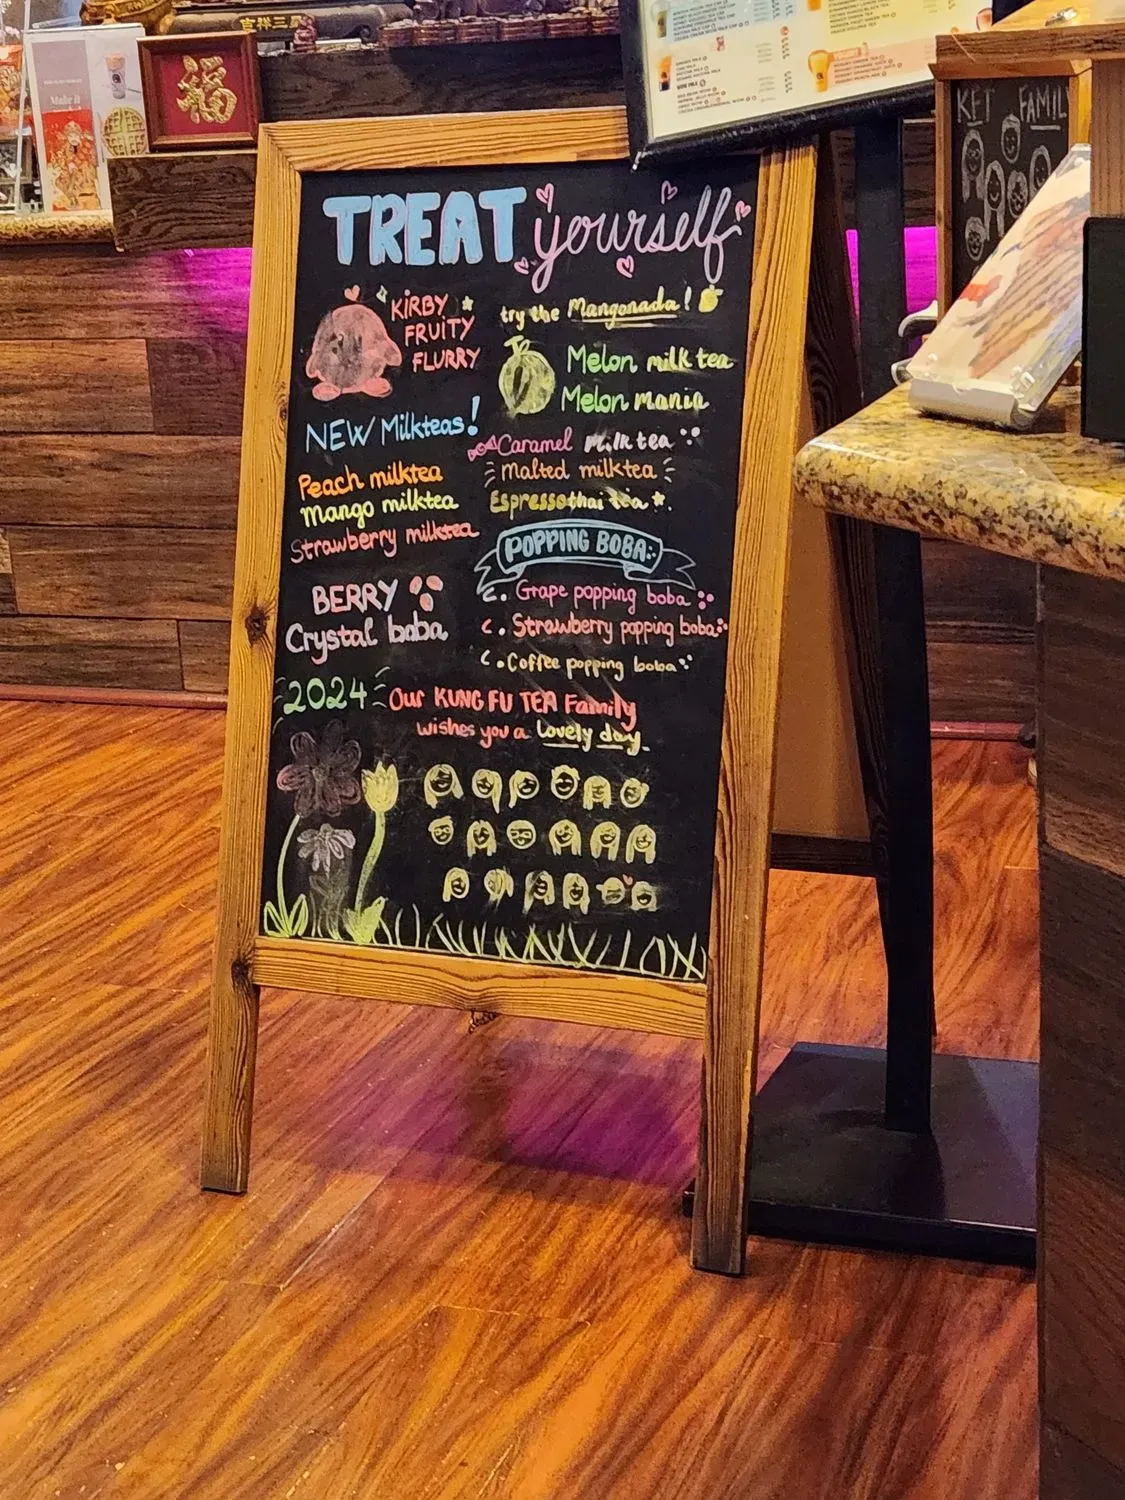 吉祥三
福
Make it
KFT FAMIL
TREAT yourself
KIRBY
FRUITY
FLURRY
try the Mangonada!
Melon milk tea
Melon mania
NEW Milkteas!
Peach milktea
Mango milktea
Strawberry milktea
Caramel milk tea
Malted milktea
Espresso thai tea
POPPING BOBA
Grape popping boba
Strawberry popping boba
Coffee popping boba
BERRY
Crystal boba
2024
Our KUNG FU TEA Family
wishes you a lovely day